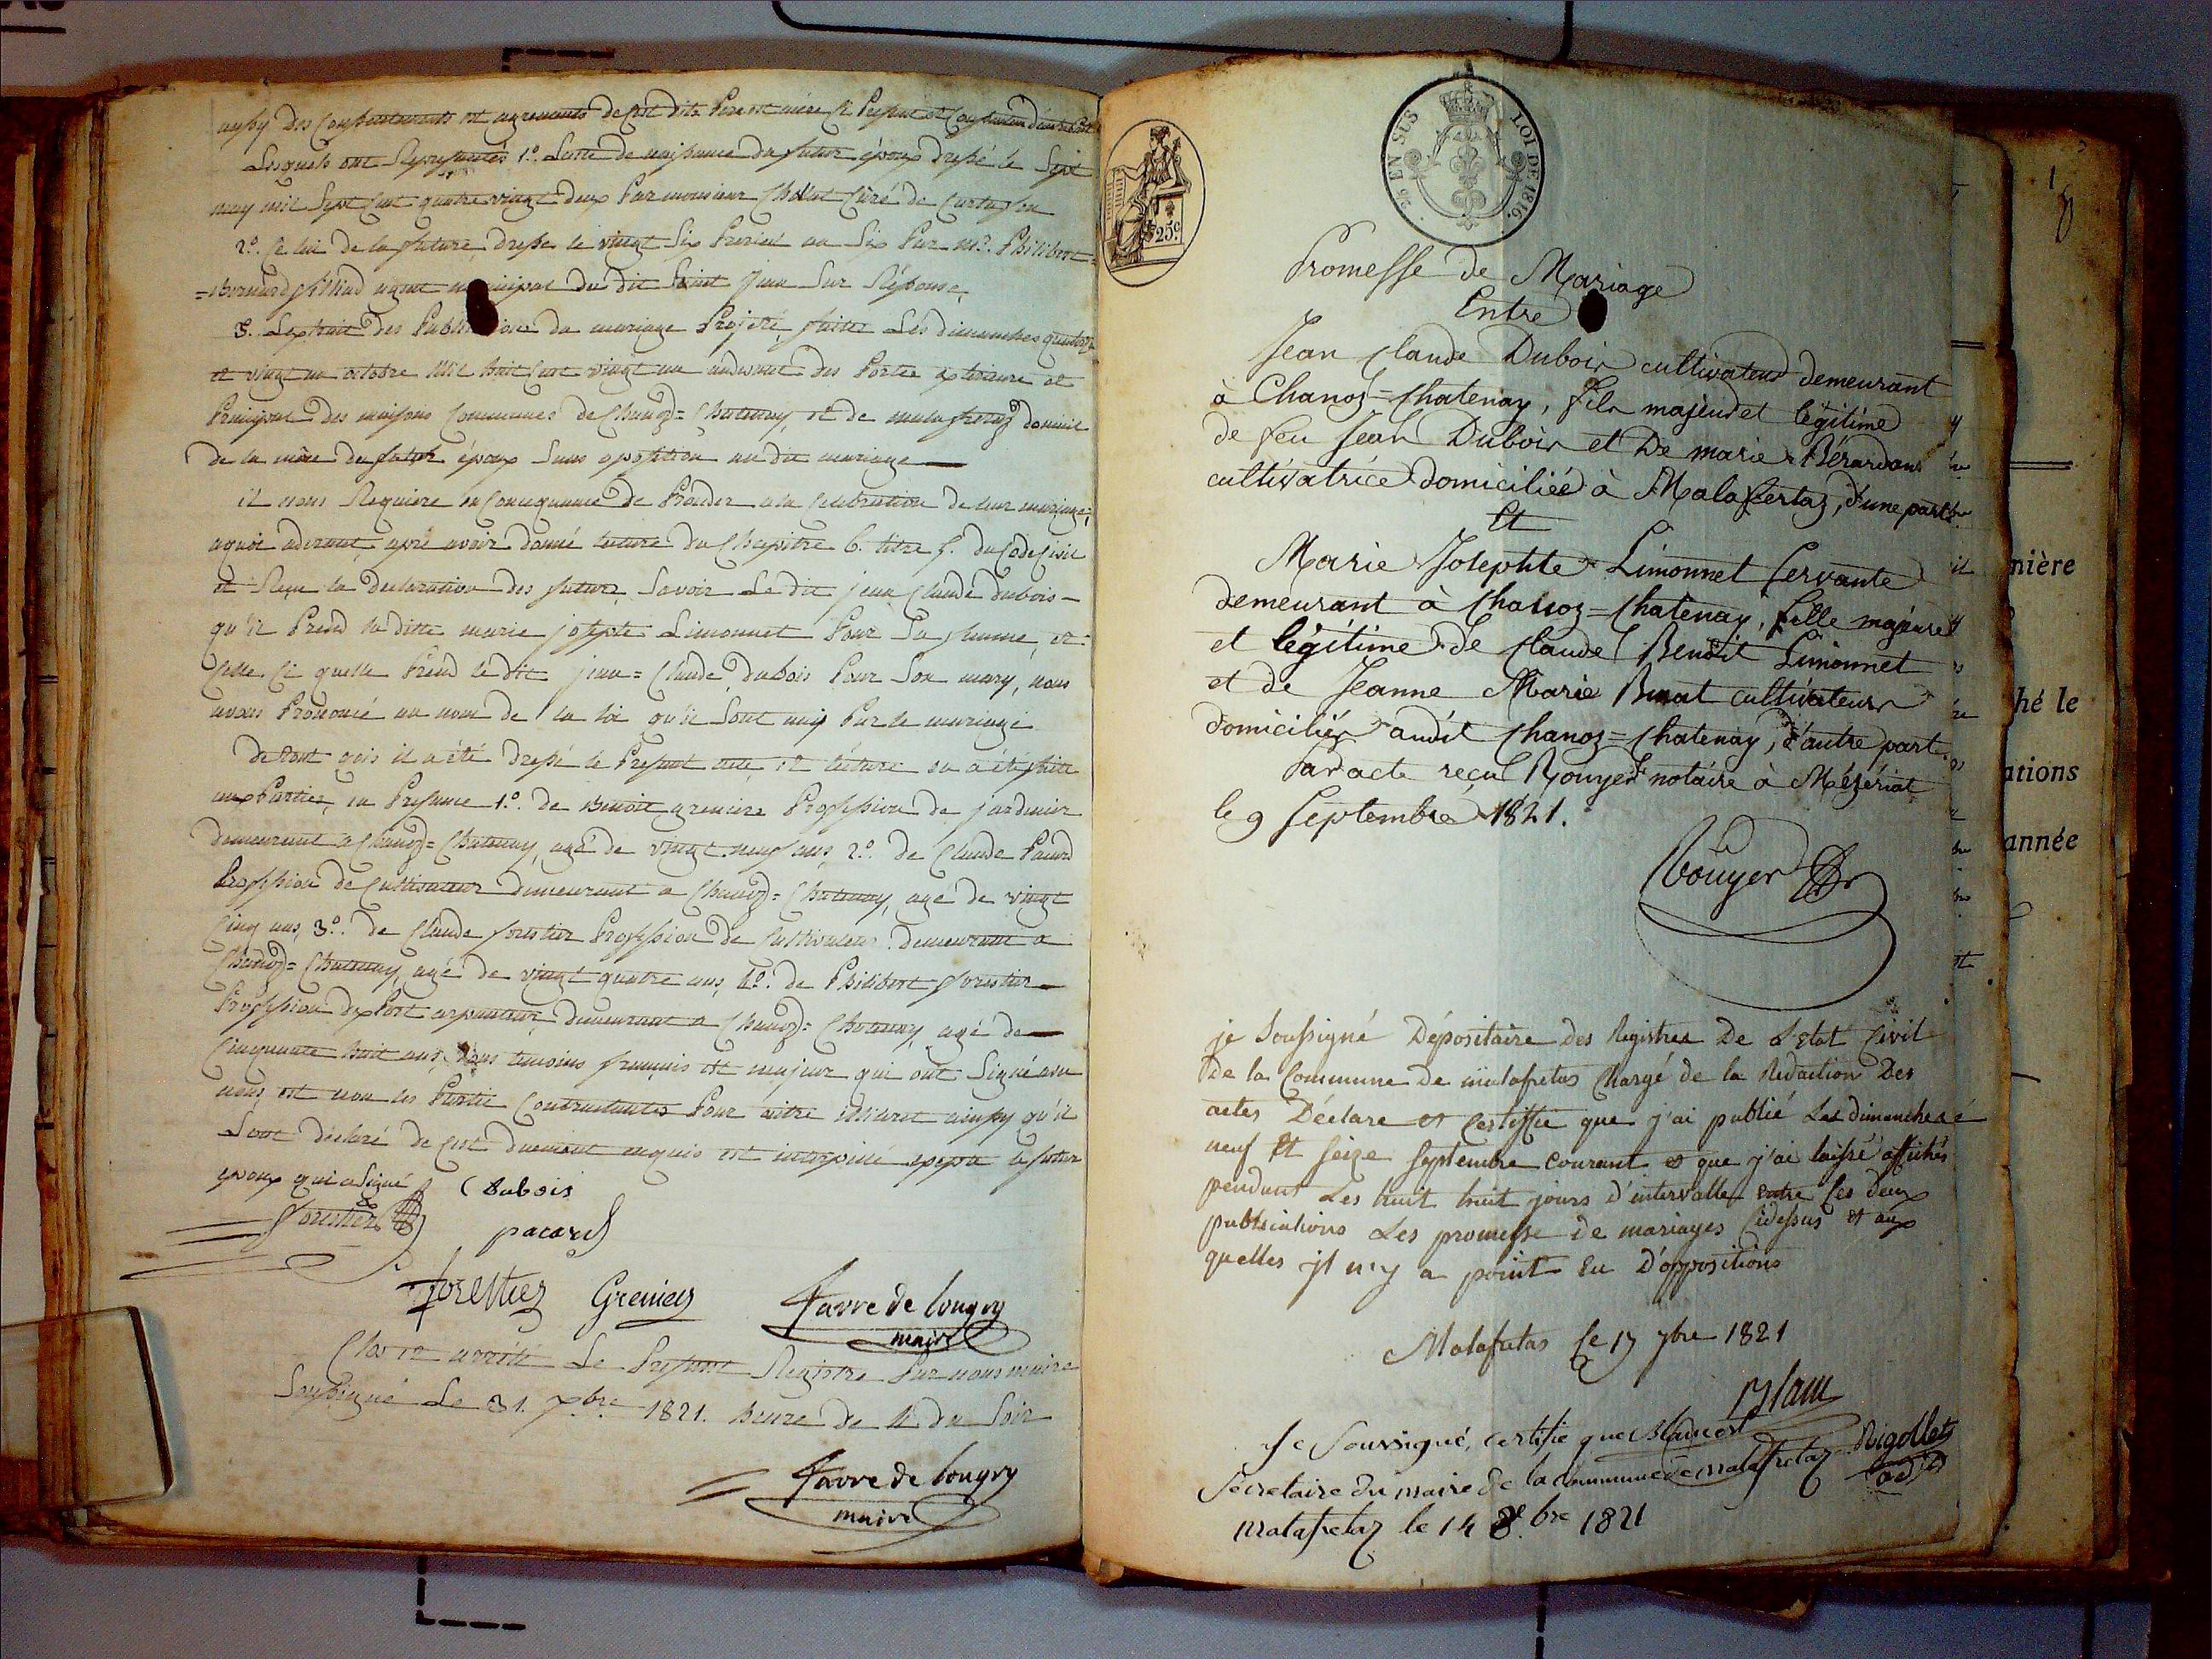 aussy des Consentements et agrements de Cest dits Pere et mère Ci Present et Consentan d'autre Part
Lesquels ont Representés 1.o Lacte de naissance du futur époux dressé le Sept
may mil Sept Cent quatre vingt deux Par monsieur Chollat Curé de Curtafon
2.o Ce lui de la future, dressé le vingt Six Prerial an Six Par mr. Philibert=
=Bernard agent municipal du dit Saint Jean Sur Reÿssouse,
3. Lextrait des Publications du mariage Projeté, faitte Les dimanches quatorze
et vingt un octobre Mil huit Cent vingt un audevant des Portes exterieure et
Principal des maisons Communes de Chanoz=Chatenay, et de malafretaz domicile
de la mère du futur époux Sans opposition au dit mariage
il nous Requiere en Consequence de Proceder a la Celebration de leur mariage;
aquoi aderant, aprè avoir donné lecture du Chapitre 6. titre 5. du Code Civil
et Reçu la declaration des futurs, Savoir Le dit jean Claude dubois -
qu'il Prend la ditte marie josephte Limonnet Pour Sa femme, et
Celle Ci quelle Prend le dit jean=Claude dubois Pour Son mary, nous
avons Prononcé au nom de la loi qu'il Sont unis Par le mariage
de tout quoi il a été dressé le Present acte, et lecture en a été faitte
aux Parties, en Presence 1.o de Benoit greniere Profession de jardinier
demeurant a Chanoz=Chatenay, agé de vingt neuf ans, 2.o de Claude Pacard
Profession de Cultivateur demeurant a Chanoz=Chatenay, agé de vingt
Cinq ans, 3.o de Claude forestier Profession de Cultivateur demeurant a
Chanoz=Chatenay, agé de vingt quatre ans, 4.o de Philibert forestier
Profession dexPert arpenteur, demeurant a Chanoz=Chatenay agé de
Cinquante huit ans, tous temoins français et majeur qui ont Signé avec
nous et non les Partie Contractantes Pour aitre illiteret ainssy qu'il
Lont déclaré de Cest duement requis et interpellé excepté le futur
epoux qui a Signé
C Dubois
forestier
pacard
forestier Grenier Favre de longry
maire
Clos et arrêté Le Present Registre Par nous maire
Soussigné Le 31. xbre 1821. heure de 4 du Soir
Favre de longry
maire
2/10 EN SUS LOI DE 1816.
25c
Promesse de Mariage
Entre
Jean Claude Dubois cultivateur demeurant
à Chanoz=Chatenay, fils majeur et légitime
de feu Jean Dubois et De marie Bérardan
cultivatrice domiciliée à Malafertaz, d'une part
Et
Marie Josephte Limonnet Servante
demeurant à Chanoz=Chatenay, fille majeure
et légitime de Claude Benoit Limonnet
et de Jeanne Marie Buvat cultivateurs
domiciliés audit Chanoz=Chatenay, d'autre part.
Par acte reçu Rouyer notaire à Mézériat
le 9 Septembre 1821.
Rouyer
je Soussigné Dépositaire des Registres De L'Etat Civil
De la Commune De malafretas Chargé de la Rédaction Des
actes Déclare et Certiffie que j'ai publié Les dimanches
neuf Et Seize Septembre Courant et que j'ai laissé affichés
pendant Les huit huit jours d'intervalle entre Les deux
publications Les promesse de mariages Cidessus et aux
quelles jl n'y a point Eu D'oppositions
Malafretas Le 17 7bre 1821
Blanc
Je Soussigné, certifie que Blanc est
Secretaire du maire de la commune de malafretaz Rigollet
adjt
Malafretaz le 14 8.bre 1821
nière
hé le
ations
année